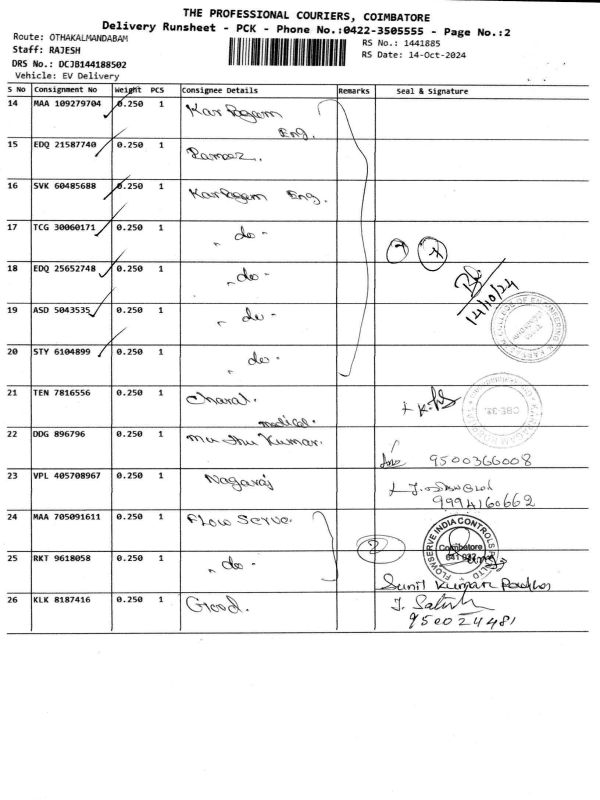 THE PROFESSIONAL COURIERS, COIMBATORE
Delivery Runsheet - PCK - Phone No.:0422-3505555 - Page No.:2
Route: OTHAKALMANDABAM
RS No.: 1441885
Staff: RAJESH
RS Date: 14-Oct-2024
DRS No.: DCJB144188502
Vehicle: EV Delivery
S No Consignment No Weight PCS Consignee Details Remarks Seal & Signature
14 MAA 109279704 0.250 1 Karpagam
Eng.
15 EDQ 21587740 0.250 1
16 SVK 60485688 0.250 1 Karpagam Eng.
17 TCG 30060171 0.250 1 " do "
7
18 EDQ 25652748 0.250 1 " do "
14/10/24
19 ASD 5043535 0.250 1 " do "
20 STY 6104899 0.250 1 " do "
21 TEN 7816556 0.250 1
medical.
22 DDG 896796 0.250 1 Muthu Kumar.
9500366008
23 VPL 405708967 0.250 1 Nagaraj
9994160662
24 MAA 705091611 0.250 1 Flow Serve.
2
FLOWSERVE INDIA CONTROLS
Coimbatore
25 RKT 9618058 0.250 1 " do "
Sunil Kumar
26 KLK 8187416 0.250 1
950024481